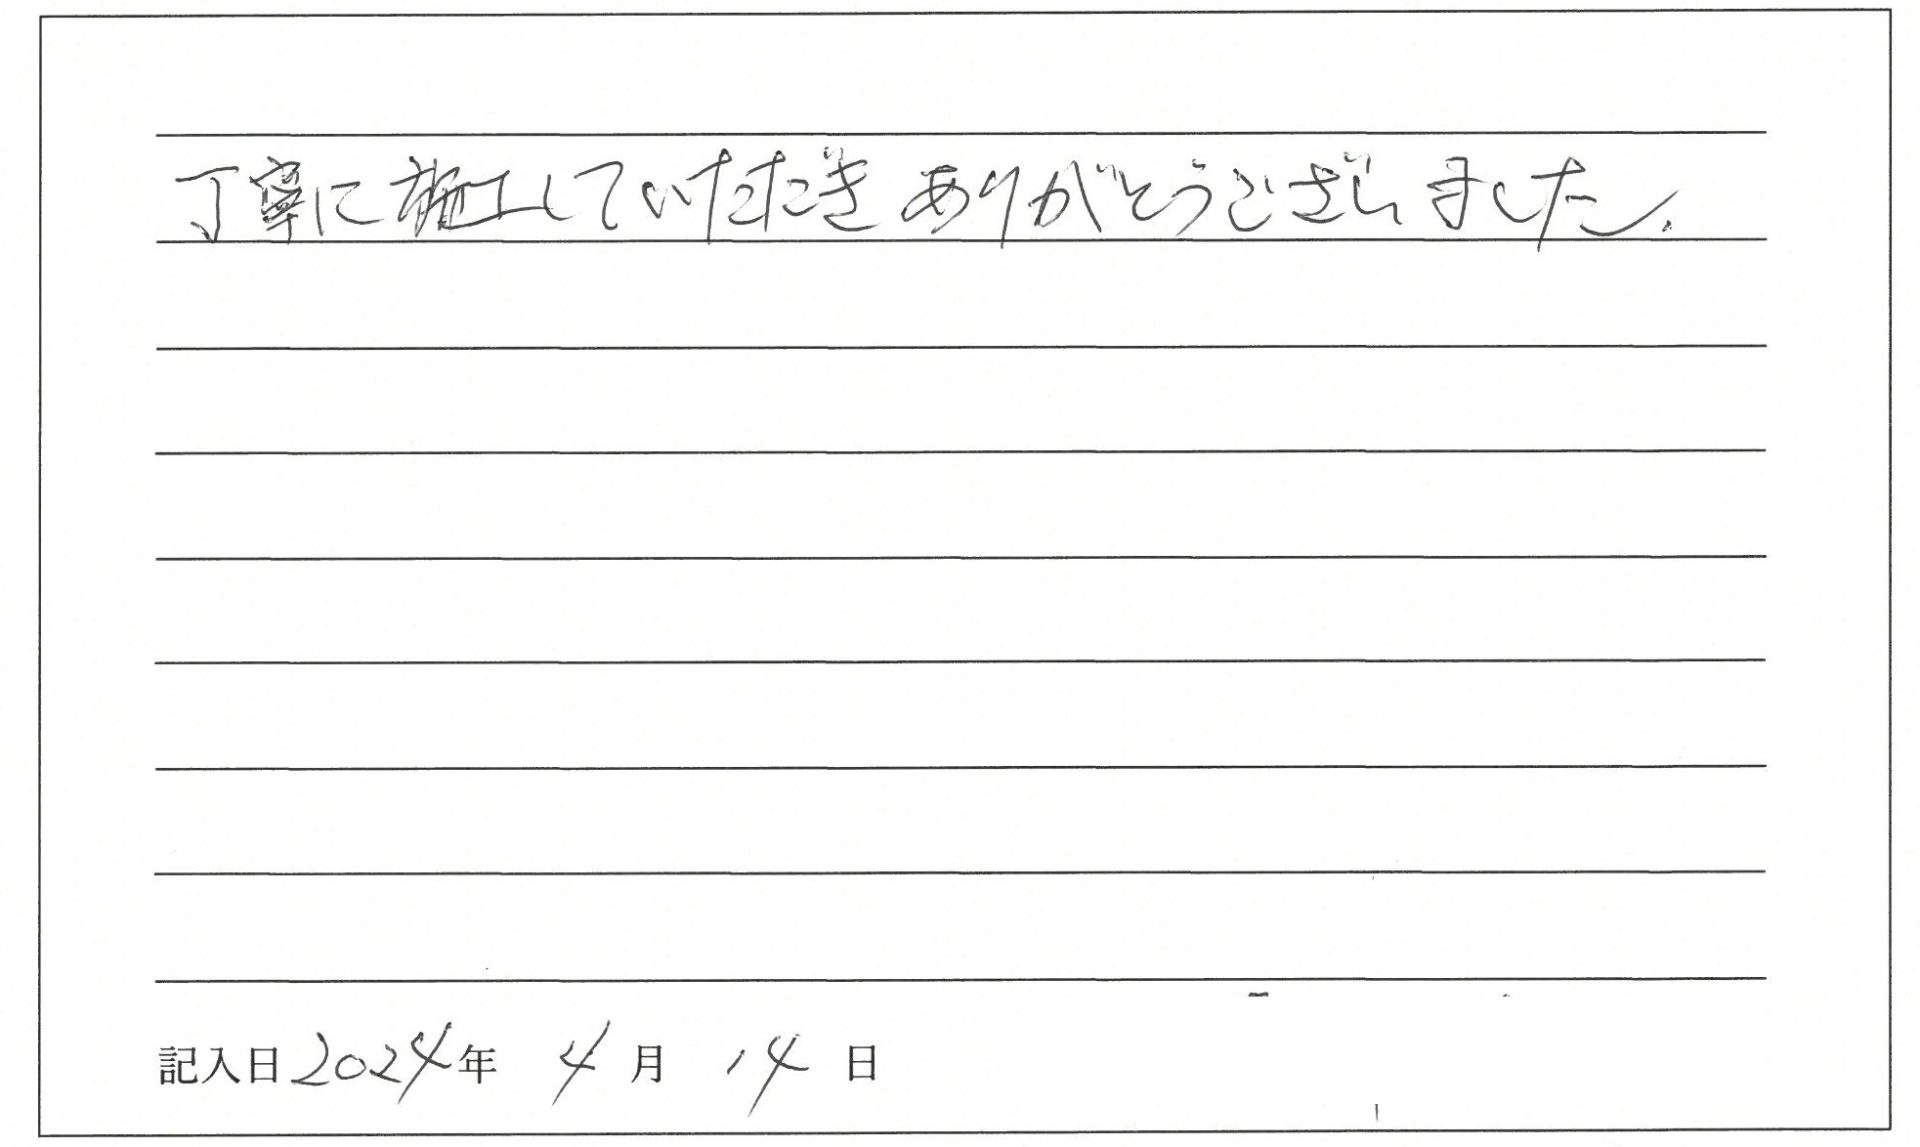 丁寧に施工していただきありがとうございました.
記入日 2024年 4月 14日